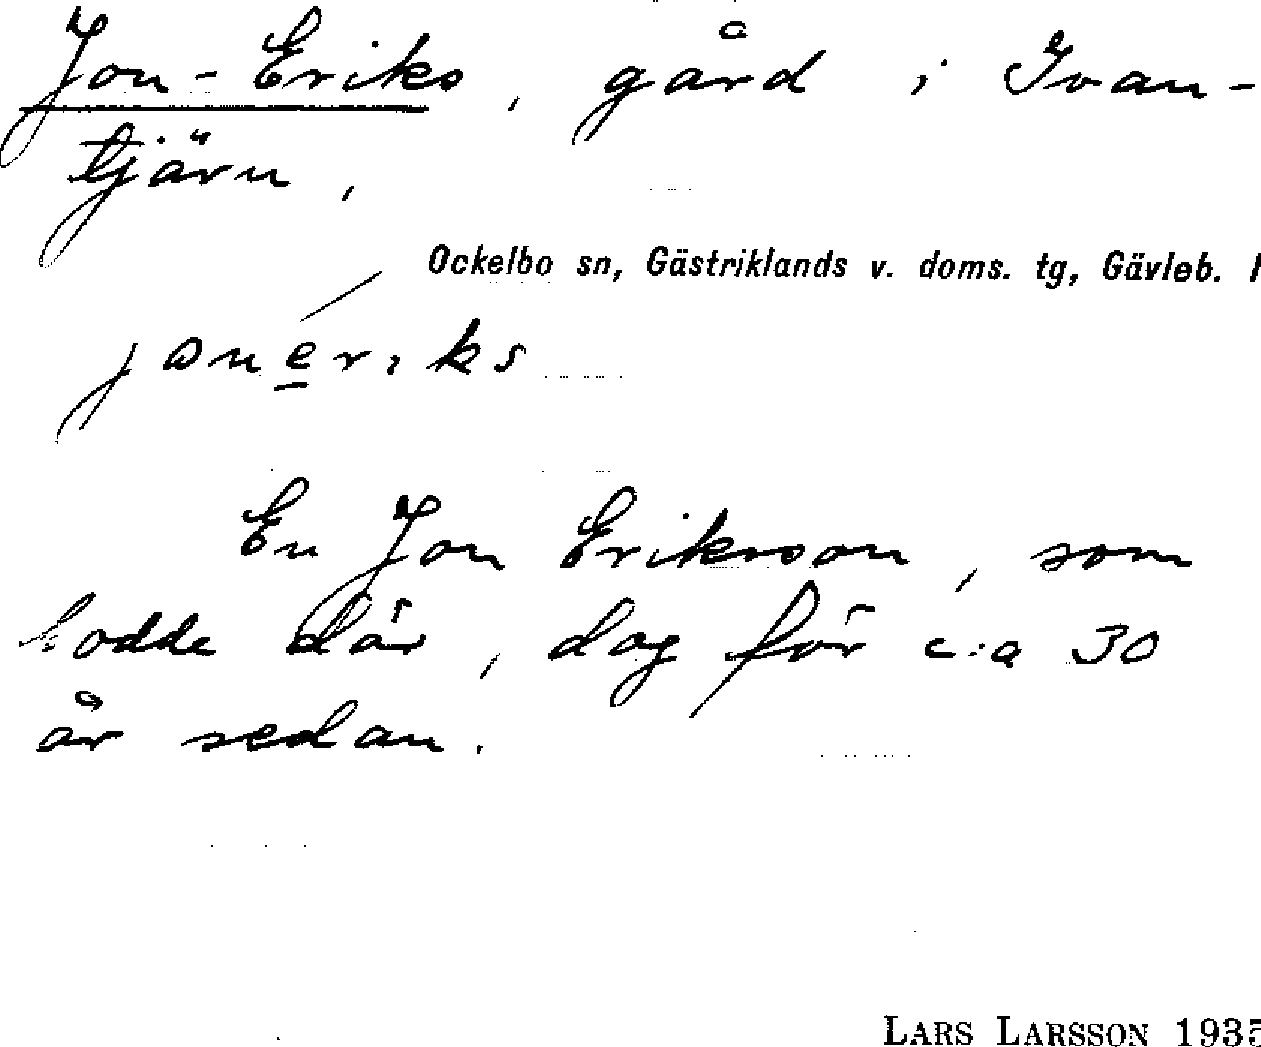 Jon-Eriks, gård i Ivan-
tjärn,
Ockelbo sn, Gästriklands v. doms. tg, Gävleb. l
jonèriks
En Jon Eriksson, som
bodde där, dog för c:a 30
år sedan.
LARS LARSSON 1935